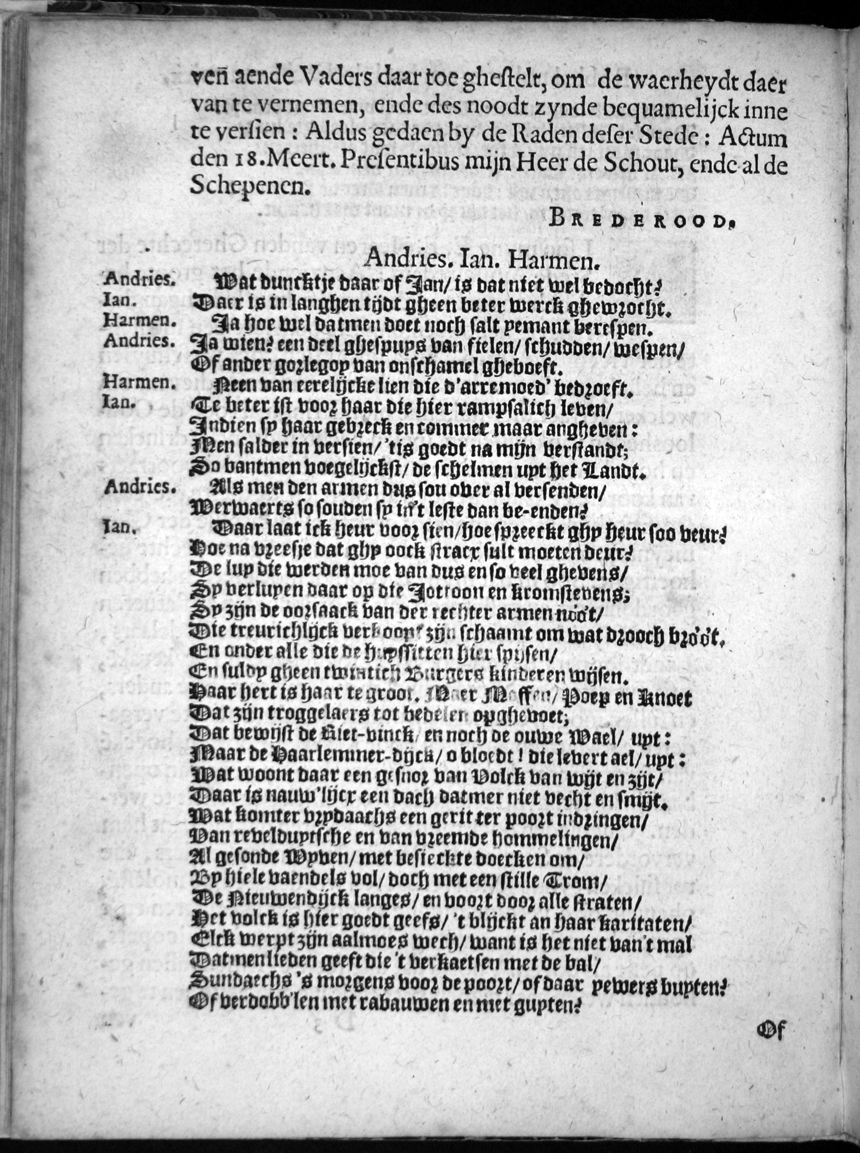 ven̄ aende Vaders daar toe ghestelt, om de waerheydt daer
van te vernemen, ende des noodt zynde bequamelijck inne
te versien : Aldus gedaen by de Raden deser Stede : Actum
den 18. Meert. Presentibus mijn Heer de Schout, ende al de
Schepenen.
BREDEROOD.
Andries. Ian. Harmen.
Andries. Wat dunck'tje daar of Jan/ is dat niet wel bedocht?
Ian. Daer is in langhen tijdt gheen beter werck ghewrocht.
Harmen. Ja hoe wel datmen doet noch salt yemant berespen.
Andries. Ja wien? een deel ghespuys van fielen/ schudden/ wespen/
Of ander gorlegoy van onschamel gheboeft.
Harmen. Neen van eerelijcke lien die d'arremoed' bedroeft.
Ian. Te beter ist voor haar die hier rampsalich leven/
Indien sy haar gebreck en commer maar angheven :
Men salder in versien/ 'tis goedt na mijn verstandt;
So bantmen voegelijckst/ de schelmen uyt het Landt.
Andries. Als men den armen dus sou over al versenden/
Werwaerts so souden sy in't leste dan be-enden?
Ian. Daar laat ick heur voor sien/ hoe spreeckt ghy heur soo veur?
Hoe na vreesje dat ghy oock stracx sult moeten deur?
De luy die werden moe van dus en so veel ghevens/
Sy verluyen daar op die Jotroon en kromstevens;
Sy zijn de oorsaack van der rechter armen nóót/
Die treurichlijck verkoopt zijn schaamt om wat drooch bróót.
En onder alle die de huyssitten hier spijsen/
En suldy gheen twintich Burgers kinderen wijsen.
Haar hert is haar te groot. Maer Moffen/ Poep en Knoet
Dat zijn troggelaers tot bedelen opghevoet;
Dat bewijst de Riet-vinck/ en noch de ouwe Wael/ uyt :
Maar de Haarlemmer-dijck/ o bloedt! die levert ael/ uyt :
Wat woont daar een gesnor van Volck van wijt en zijt/
Daar is nauw'lijcx een dach datmer niet vecht en smijt.
Wat komter vrydaachs een gerit ter poort indringen/
Van revelduytsche en van vreemde hommelingen/
Al gesonde Wyven/ met besieckte doecken om/
By hiele vaendels vol/ doch met een stille Trom/
De Nieuwendijck langes/ en voort door alle straten/
Het volck is hier goedt geefs/ 't blijckt an haar karitaten/
Elck werpt zijn aalmoes wech/ want is het niet van't mal
Datmen lieden geeft die 't verkaetsen met de bal/
Sundaechs 's morgens voor de poort/ of daar yewers buyten?
Of verdobb'len met rabauwen en met guyten?
Of